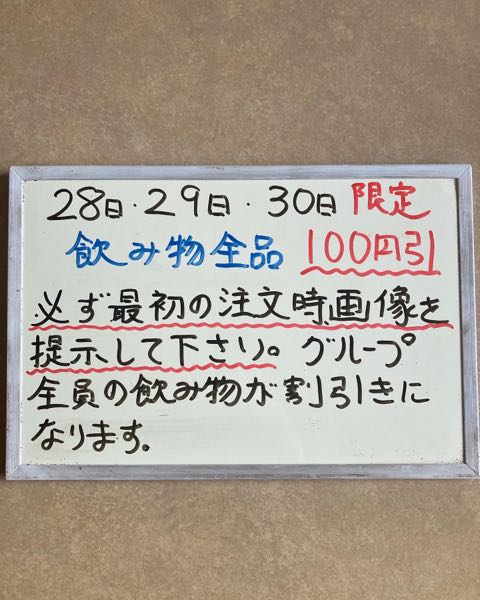 28日・29日・30日 限定
飲み物全品 100円引
必ず最初の注文時画像を
提示して下さい。グループ
全員の飲み物が割引きに
なります。